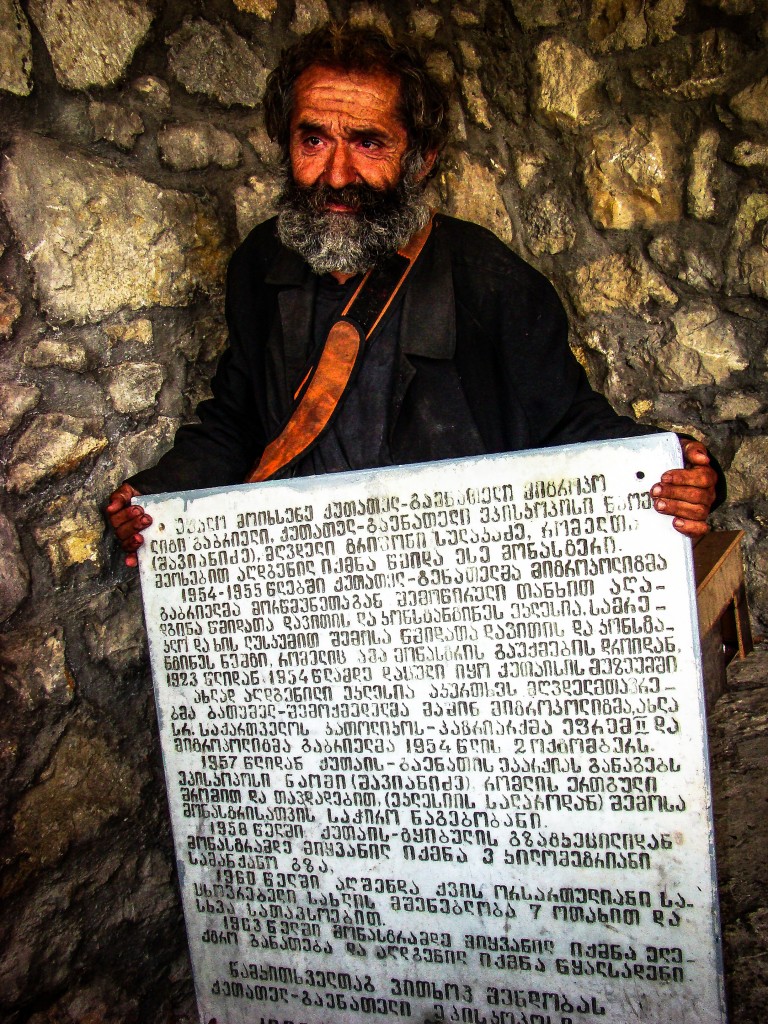 უფალო მოიხსენე ქუთათელ-გაენათელი მიტროპო
ლიტი გაბრიელი, ქუთათელ-გაენათელი ეპისკოპოსი ნაომი
(შავიანიძე), მღვდელი ტრიფონი რომელთა
მეოხებით აღდგენილ იქმნა წმიდა ესე მონასტერი.
1954-1955 წლებში ქუთათელ-გენათელმა მიტროპოლიტმა
გაბრიელმა მორწმუნეთაგან შემოწირული თანხით აღა-
დგინა წმიდათა დავითის და კონსტანტინეს ეკლესია, სამრე-
კლო და ხის ლუსკუმით შემოსა წმიდათა დავითის და კონსტა-
ნტინეს ნეშტი, რომელიც ამა მონასტრის გაუქმების დროიდან,
1923 წლიდან, 1954 წლამდე დაცული იყო ქუთაისის მუზეუმში
ახლად აღდგენილი ეკლესია აკურთხეს მღვდელმთავრე-
ბმა ბათუმელ-შემოქმედელმა მაშინ მიტროპოლიტმა, ახლა
სრ. საქართველოს კათოლიკოს-პატრიარქმა ეფრემ II და
მიტროპოლიტმა გაბრიელმა 1954 წლის 2 ოქტომბერს.
1957 წლიდან ქუთაის-გაენათის ეპარქიას განაგებს
ეპისკოპოსი ნაომი (შავიანიძე), რომლის ერთგული
შრომით და თავდადებით, (ეკლესიის სალაროდან) შემოსა
მონასტრისათვის საჭირო ნაგებობანი.
1958 წელში ქუთაის-ტყიბულის გზატკეცილიდან
მონასტრამდე მიყვანილ იქმნა 3 კილომეტრიანი
სამანქანო გზა.
1960 წელში აღშენდა ქვის ორსართულიანი სა-
ცხოვრებელი სახლის მშენებლობა 7 ოთახით და
სხვა სათავსოებით.
1963 წელში მონასტრამდე მიყვანილ იქმნა ელე-
ქტრო განათება და აღდგენილ იქმნა წყალსადენი
წამკითხველთაგ ვითხოვ შენდობას
ქუთათელ-გაენათელი ეპისკოპოსი